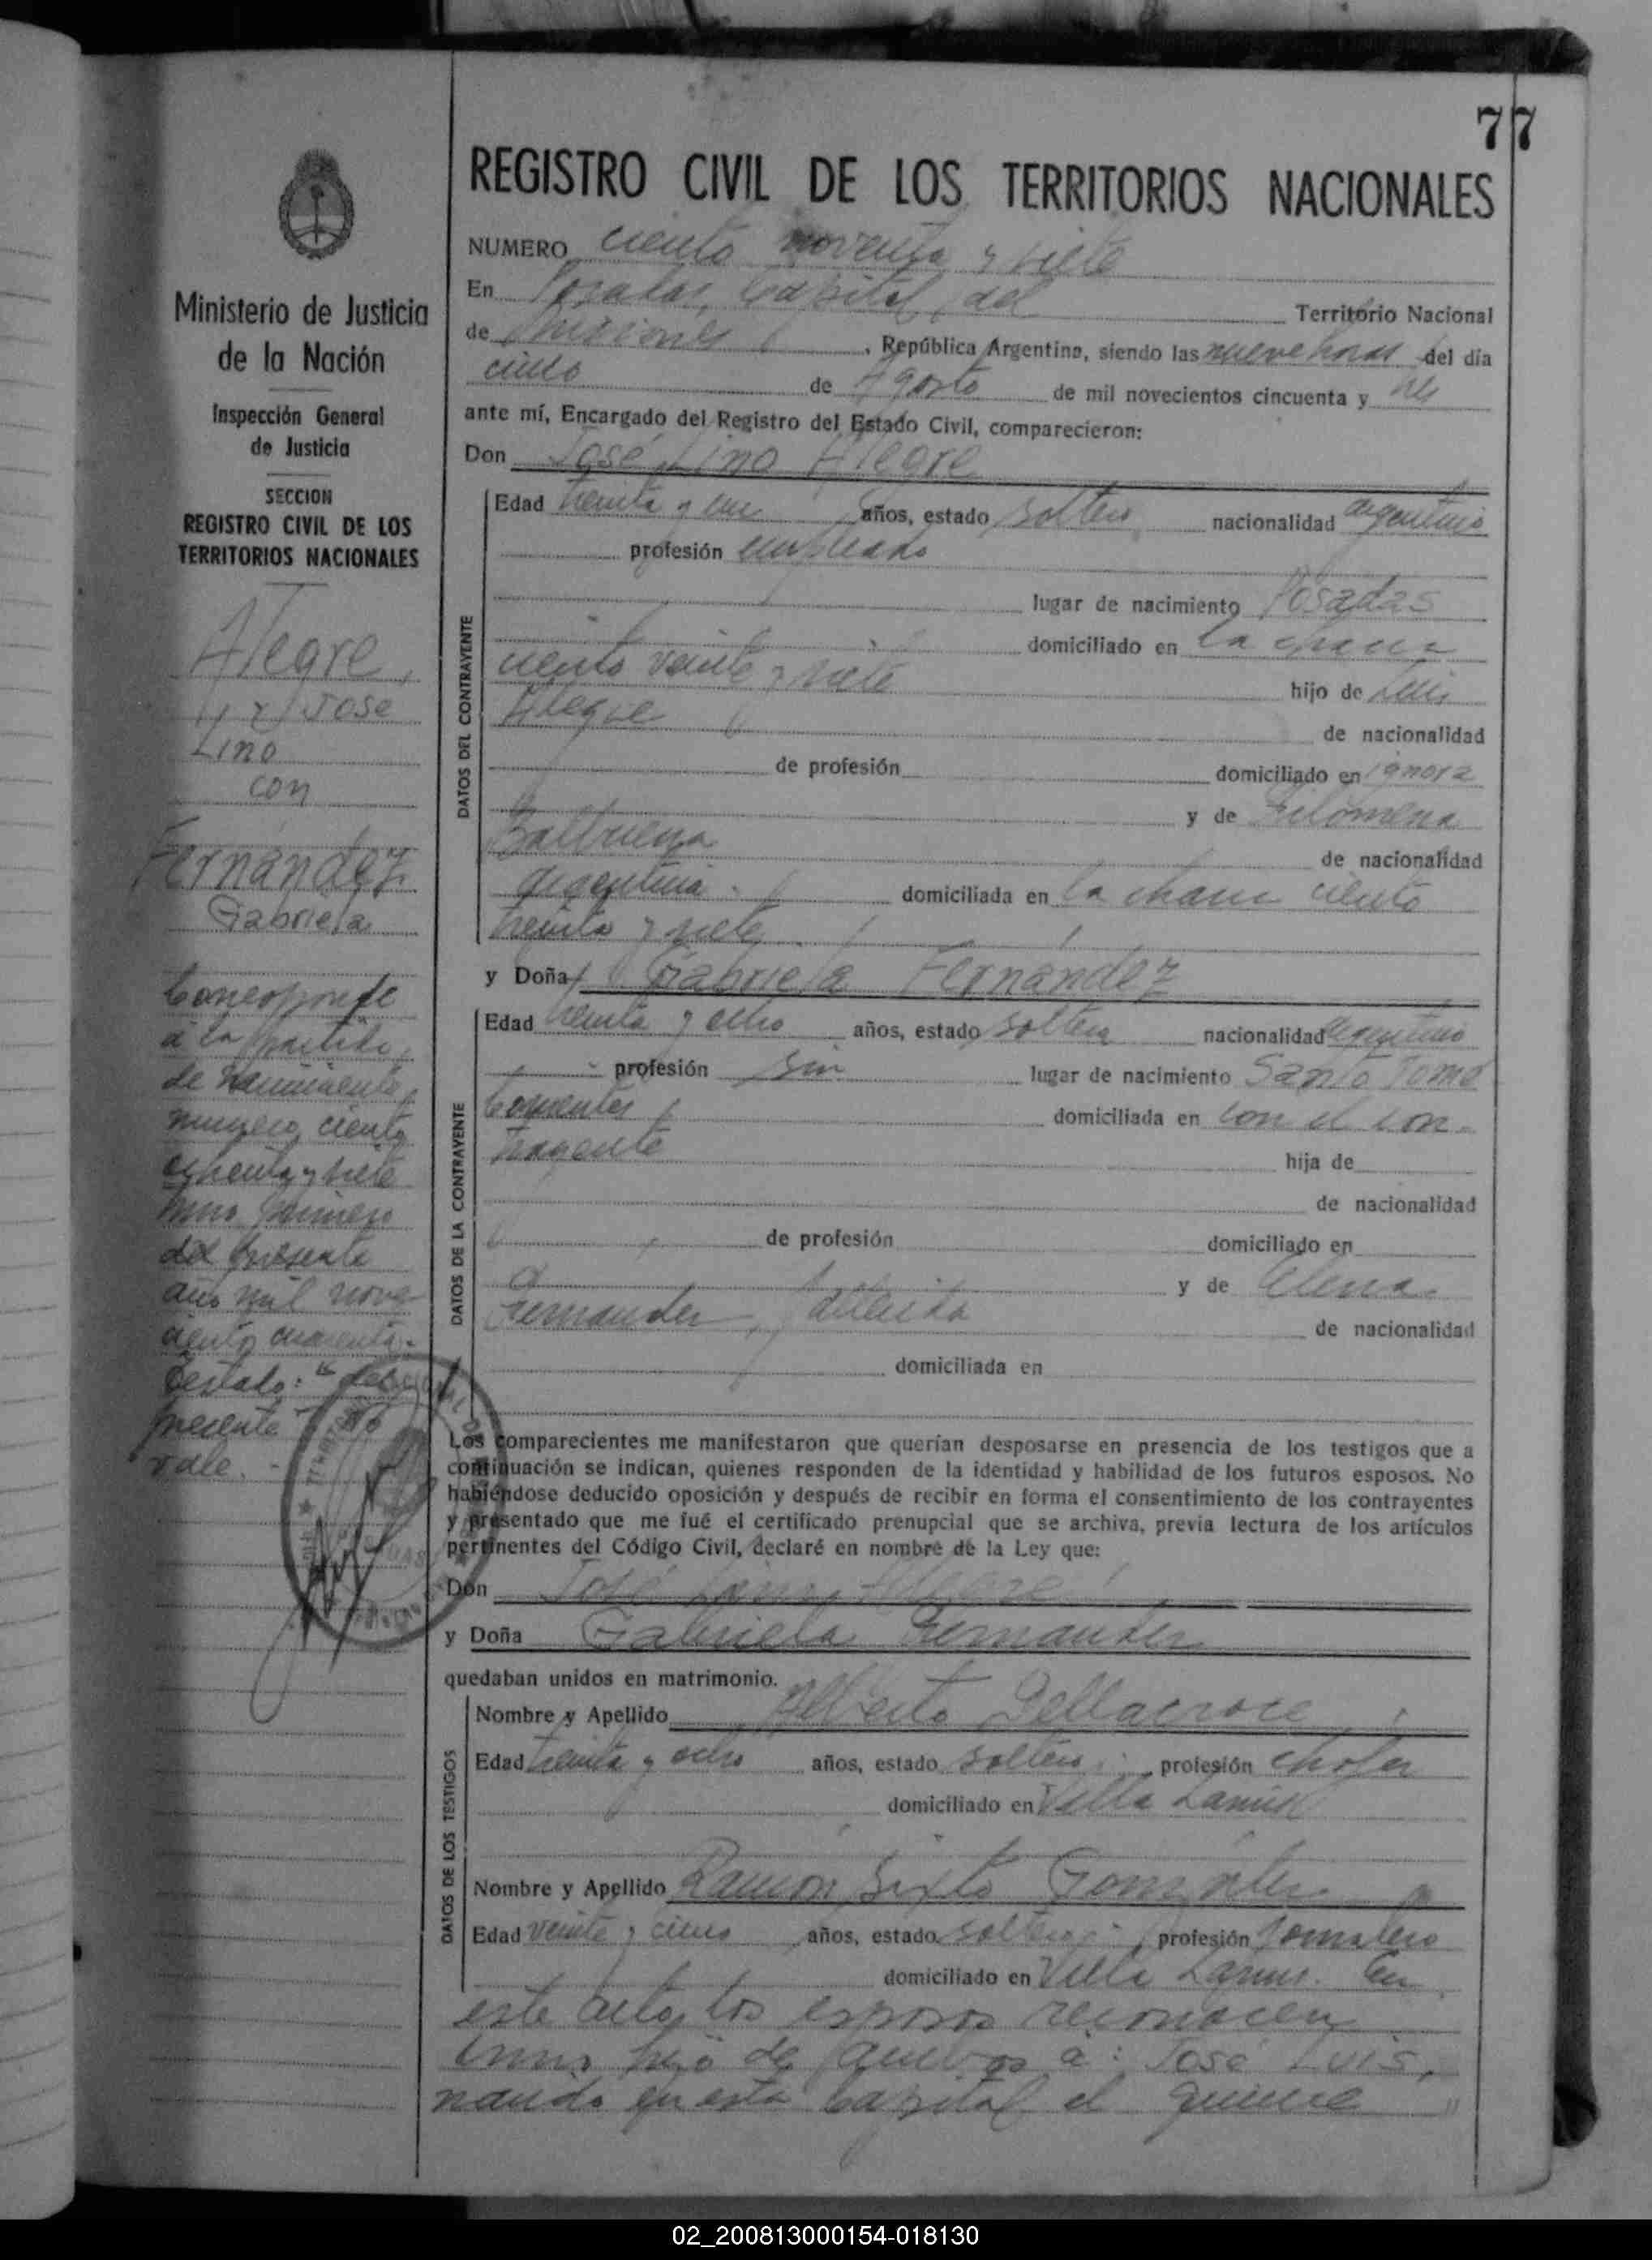 77
REGISTRO CIVIL DE LOS TERRITORIOS NACIONALES
Ministerio de Justicia
de la Nación
Inspección General
de Justicia
SECCION
REGISTRO CIVIL DE LOS
TERRITORIOS NACIONALES
Alegre,
José
Lino
con
Fernández
Gabriela
Corresponde
a la partida
de nacimiento
número ciento
ochenta y siete
tomo primero
del presente
año mil nove
ciento cuarenta.
Testado: "del
presente" no
vale.
NUMERO ciento noventa y siete
En Posadas, Capital del Territorio Nacional
de Misiones, República Argentina, siendo las nueve horas del día
cinco de Agosto de mil novecientos cincuenta y tres
ante mí, Encargado del Registro del Estado Civil, comparecieron:
Don José Lino Alegre
DATOS DEL CONTRAYENTE
Edad treinta y un años, estado soltero nacionalidad argentino
profesión empleado
lugar de nacimiento Posadas
domiciliado en la chacra
ciento veinte y siete hijo de Luis
Alegre de nacionalidad
de profesión domiciliado en ignora
y de Filomena
Balbuena de nacionalidad
argentina domiciliada en la chacra ciento
treinta y siete
y Doña Gabriela Fernández
DATOS DE LA CONTRAYENTE
Edad treinta y ocho años, estado soltera nacionalidad argentina
profesión sin lugar de nacimiento Santo Tomé
Corrientes domiciliada en con el con-
trayente hija de
de nacionalidad
de profesión domiciliado en
y de Elena
Fernandez, de nacionalidad
domiciliada en
Los comparecientes me manifestaron que querían desposarse en presencia de los testigos que a
continuación se indican, quienes responden de la identidad y habilidad de los futuros esposos. No
habiéndose deducido oposición y después de recibir en forma el consentimiento de los contrayentes
y presentado que me fué el certificado prenupcial que se archiva, previa lectura de los artículos
pertinentes del Código Civil, declaré en nombre de la Ley que:
Don José Lino Alegre
y Doña Gabriela Fernandez
quedaban unidos en matrimonio.
DATOS DE LOS TESTIGOS
Nombre y Apellido Alberto Dellacroce
Edad treinta y ocho años, estado soltero profesión chofer
domiciliado en Villa Lanus
Nombre y Apellido Ramón Sixto González
Edad veinte y cinco años, estado soltero profesión jornalero
domiciliado en Villa Lanus. En
este acto los esposos reconocen
como hijo de ambos a: José Luis,
nacido en esta Capital el quince
02_200813000154-018130